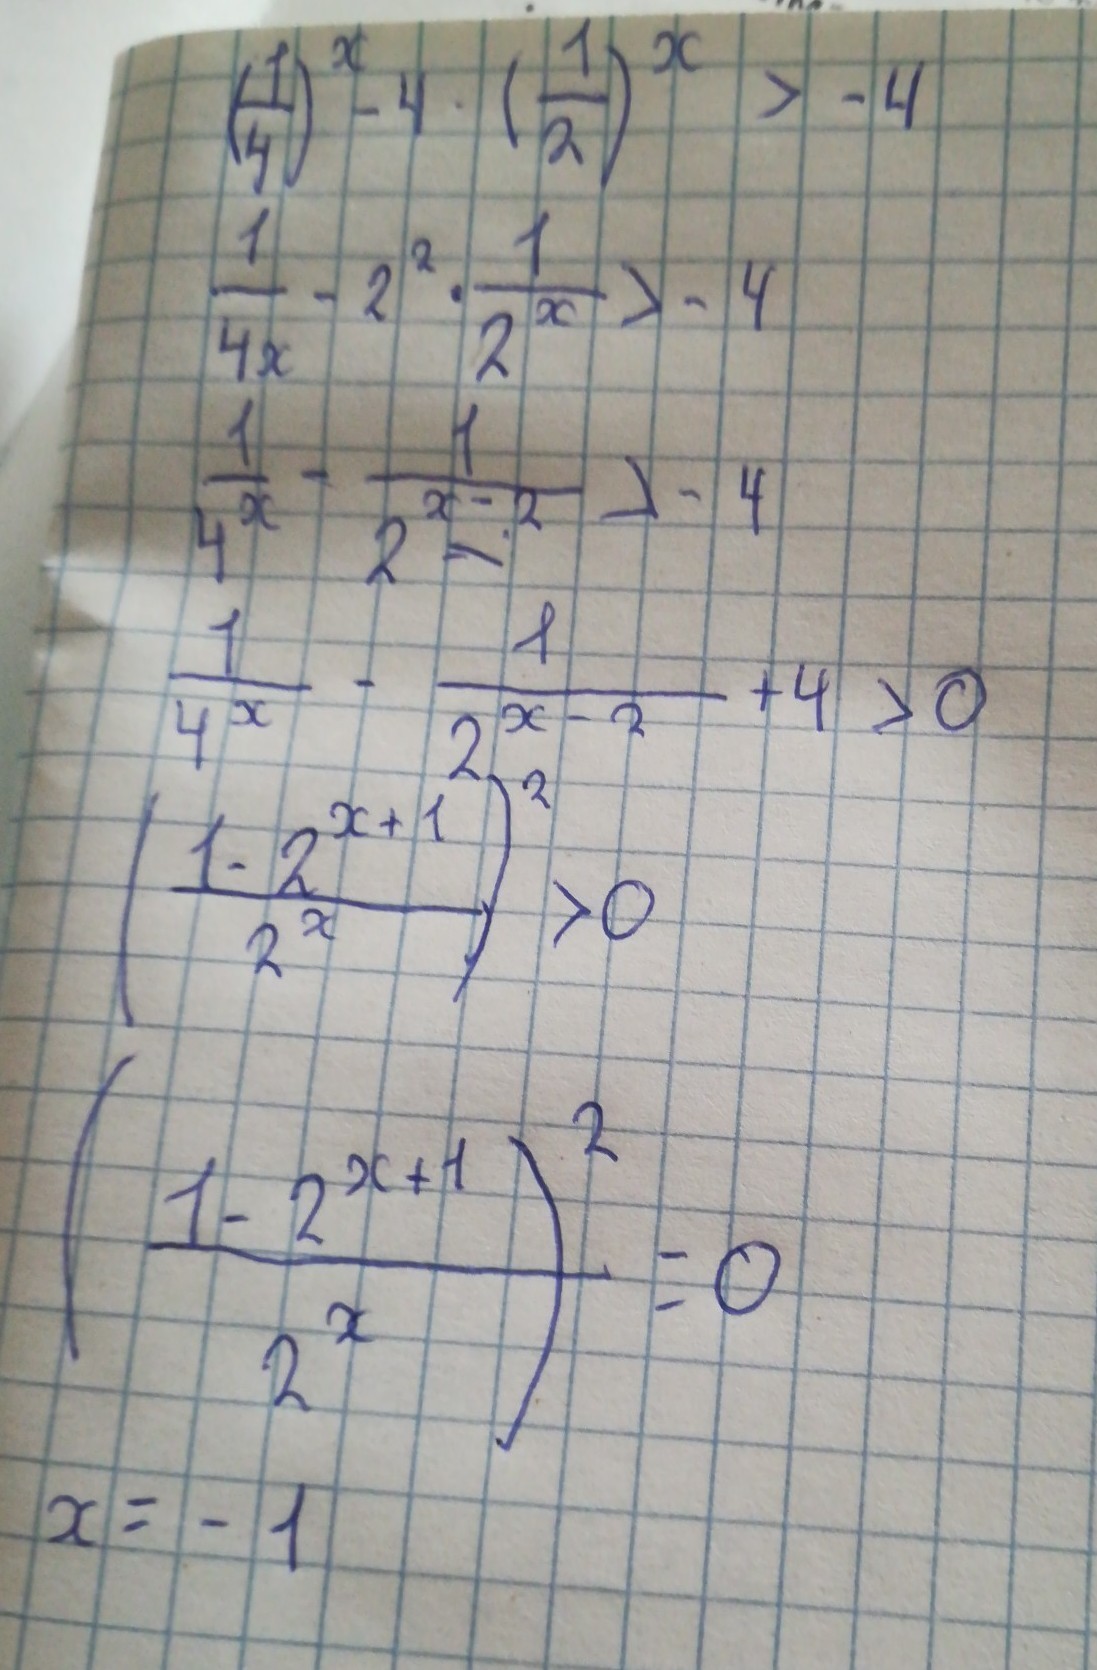 (1/4)^x - 4 · (1/2)^x > -4
1/4x - 2^2 · 1/2^x > - 4
1/4^x - 1/2^(x-2) > - 4
1/4^x - 1/2^(x-2) + 4 > 0
((1 - 2^(x+1))/2^x)^2 > 0
((1 - 2^(x+1))/2^x)^2 = 0
x = - 1